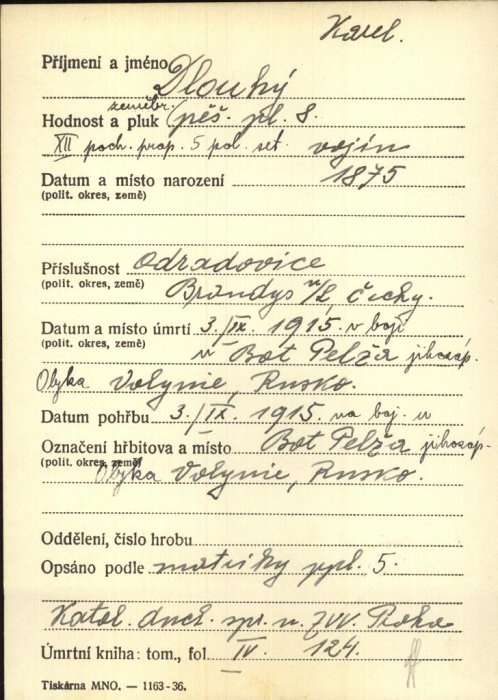 Karel.
Příjmení a jméno Dlouhý
zeměbr.
Hodnost a pluk pěš. pl. 8.
XII poch. prap. 5 pol. set. vojín
Datum a místo narození 1875
(polit. okres, země)
Příslušnost Odradovice
(polit. okres, země) Brandys n/L Čechy.
Datum a místo úmrtí 3./IX. 1915. v boji
(polit. okres, země) u Bot Pelža jihozáp.
Olyka Volynie, Rusko.
Datum pohřbu 3./IX. 1915. na boj. u
Označení hřbitova a místo Bot Pelža jihozáp.
(polit. okres, země) Olyka Volynie, Rusko.
Oddělení, číslo hrobu
Opsáno podle matriky ppl. 5.
Katol. duch. spr. u ZVV. Praha
Úmrtní kniha: tom., fol. IV. 124.
Tiskárna MNO. — 1163-36.